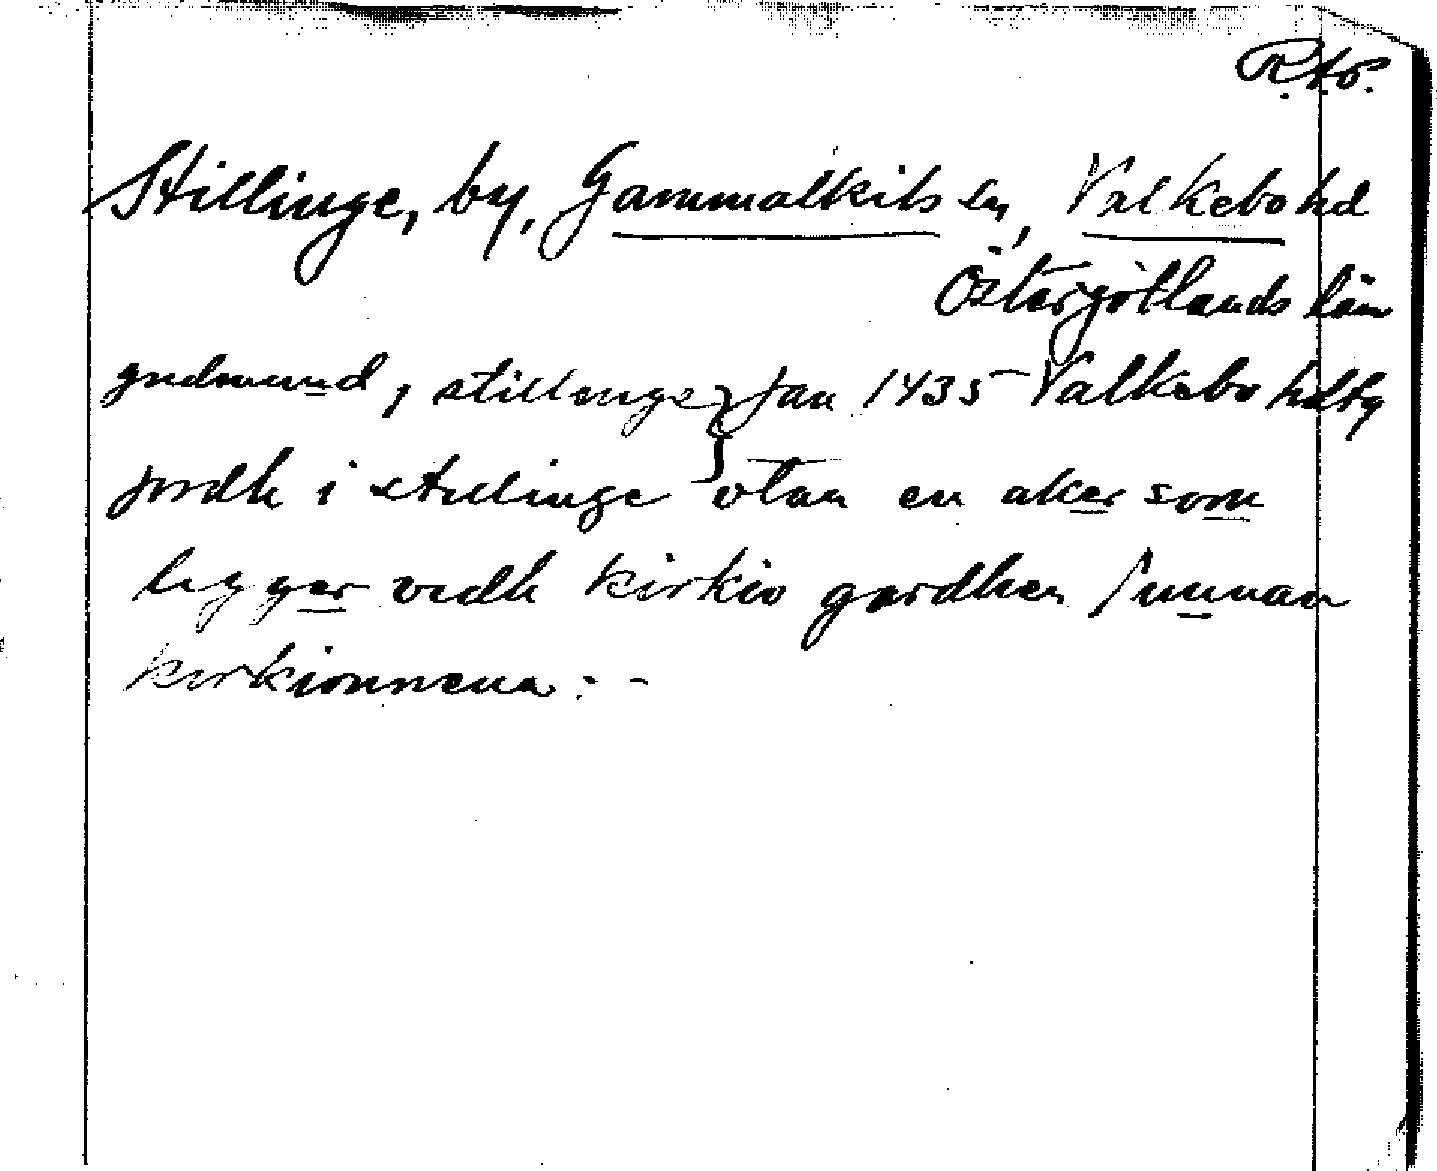 R.to.
Stillinge, by, Gammalkils sn, Valkebo hd
Östergötlands län
gudmund, stillenge Jan 1435 Valkebo hdtg
jordh i stillinge vtan en aker som
ligger vidh kirkio gardhen sunnan
kirkionnena: -